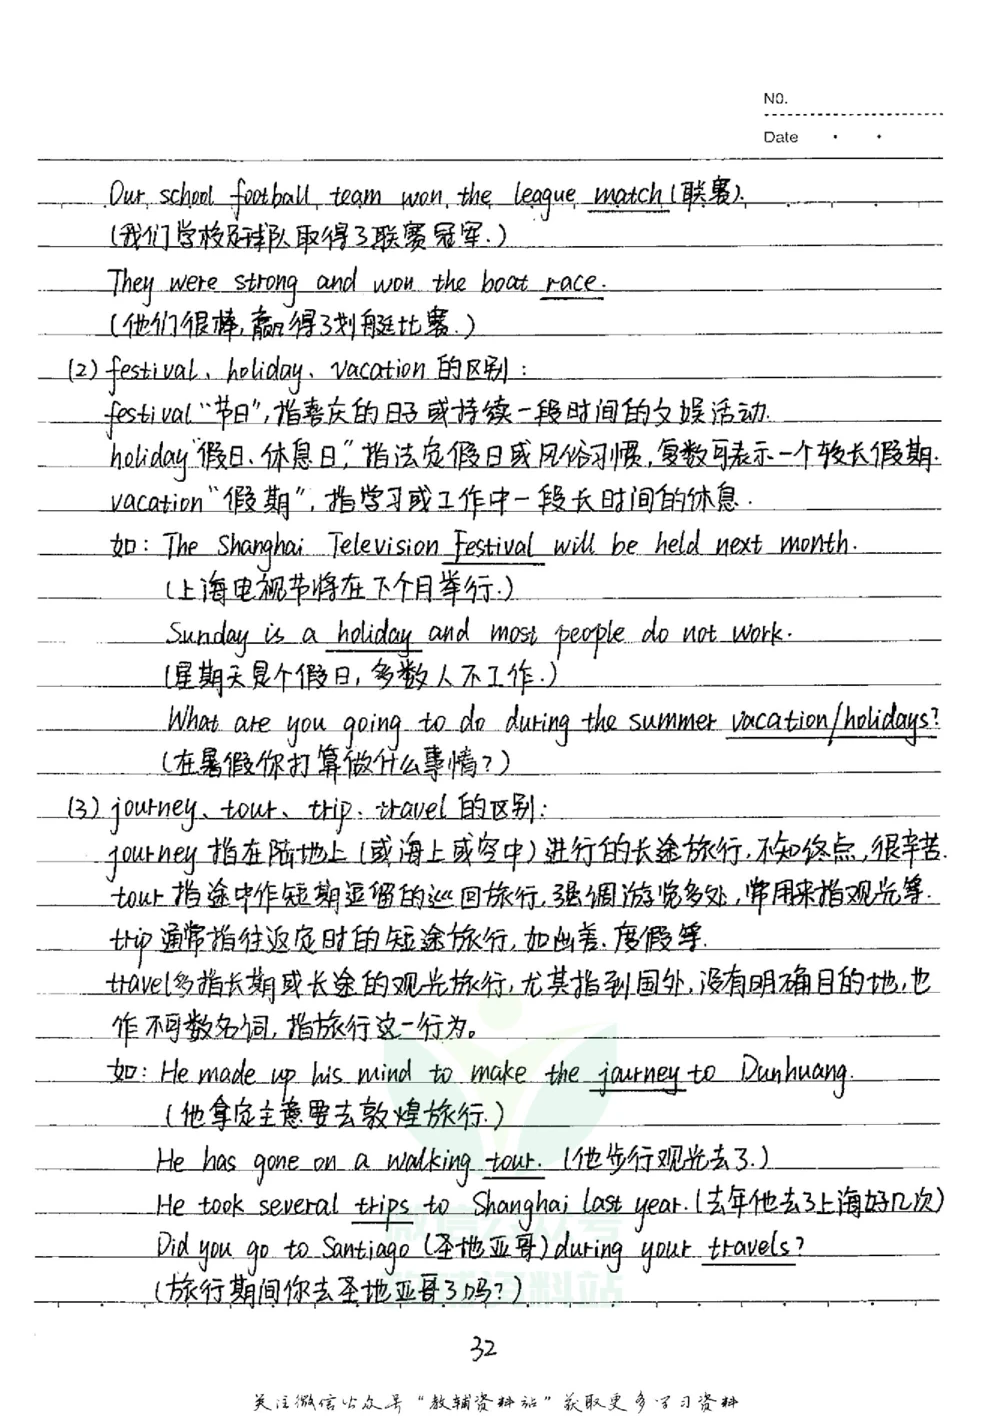 NO.
Date
Our school football team won the league match (联赛).
(我们学校足球队取得了联赛冠军.)
They were strong and won the boat race.
(他们很棒,赢得了划艇比赛.)
(2) festival、holiday、vacation 的区别:
festival “节日”,指喜庆的日子或持续一段时间的文娱活动.
holiday “假日、休息日”,指法定假日或风俗习惯,复数可表示一个较长假期.
vacation “假期”,指学习或工作中一段长时间的休息.
如: The Shanghai Television Festival will be held next month.
(上海电视节将在下个月举行.)
Sunday is a holiday and most people do not work.
(星期天是个假日,多数人不工作.)
What are you going to do during the summer vacation/holidays?
(在暑假你打算做什么事情?)
(3) journey、tour、trip、travel 的区别:
journey 指在陆地上(或海上或空中)进行的长途旅行,不知终点,很辛苦.
tour 指途中作短期逗留的巡回旅行,强调游览多处,常用来指观光等.
trip 通常指往返定时的短途旅行,如出差、度假等.
travel多指长期或长途的观光旅行,尤其指到国外,没有明确目的地,也
作不可数名词,指旅行这一行为。
如: He made up his mind to make the journey to Dunhuang.
(他拿定主意要去敦煌旅行.)
He has gone on a walking tour. (他步行观光去了.)
He took several trips to Shanghai last year. (去年他去了上海好几次)
Did you go to Santiago (圣地亚哥) during your travels?
(旅行期间你去圣地亚哥了吗?)
微信公众号
教辅资料站
32
关注微信公众号“教辅资料站”获取更多学习资料